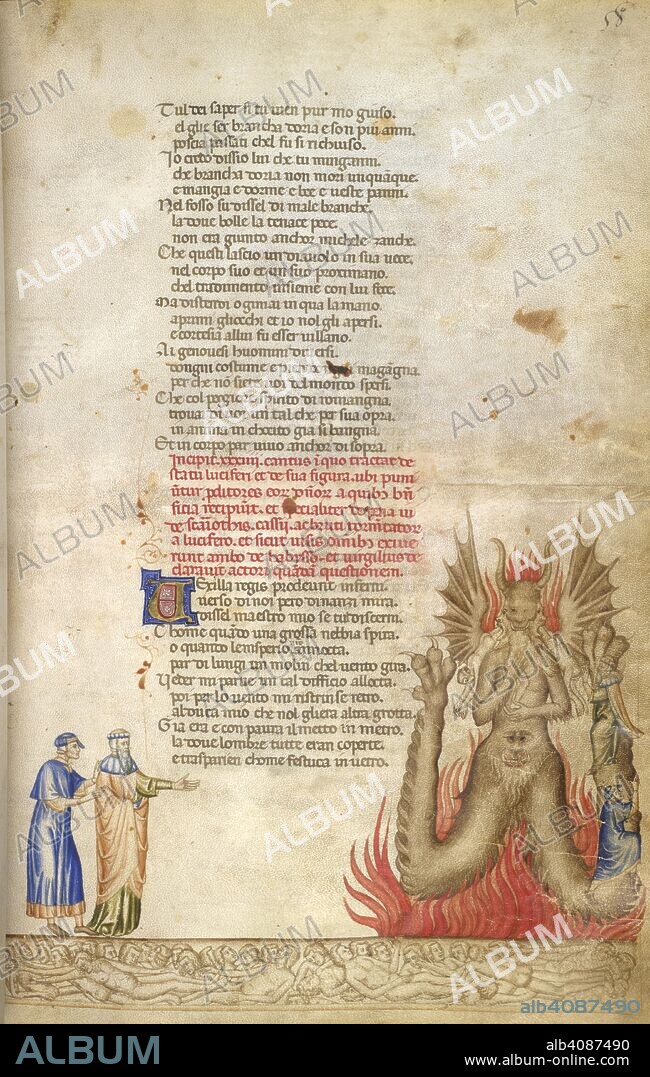 58
Tul dei saper si tu vien pur mo giuso.
el glie ser brancha doria e son piu anni.
poscia passati chel fu si richiuso.
Io credo dissio lui che tu minganni.
che brancha doria non mori unquanque.
e mangia e dorme e bee e veste panni.
Nel fosso su dissel di male branche.
la dove bolle la tenace pece.
non era giunto anchor michele zanche.
Che questi lascio un diavolo in sua vece.
nel corpo suo et un suo proximano.
chel tradimento insieme con lui fece.
Ma distendi ogimai in qua la mano.
aprimi gliocchi et io nol gli apersi.
e cortesia allui fu esser villano.
Ai genovesi huomini diversi.
dongni costume e pien magangna.
per che non siete voi del mondo spersi.
Che col peggiore spirito di romangna.
trovai di voi un tal che per sua opra.
in anima in chocito gia si bangna.
Et in corpo par vivo anchor di sopra.
Incipit xxxiiii. cantus in quo tractat de
statu luciferi et de sua figura. ubi puni
untur proditores eorum a quibus
recipiunt. et de
cassii. ac bruti
a lucifero. et sicut visis omnibus exive
runt ambo de habysso. et virgilius de
claravit actori quandam questionem.
Vexilla regis prodeunt inferni.
verso di noi pero dinanzi mira.
dissel maestro mio se tu discerni.
Chome quando una grossa nebbia spira.
o quando lemisperio annocta.
par di lungi un molin chel vento gira.
Veder mi parve un tal dificio allocta.
poi per lo vento mi ristrinse retro.
al duca mio che nol gliera altra grotta.
Gia era e con paura il metto in metro.
la dove lombre tutte eran coperte.
e trasparien chome festuca in vetro.
ALBUM
alb4087490
ALBUM
alb4087490
album-online.com